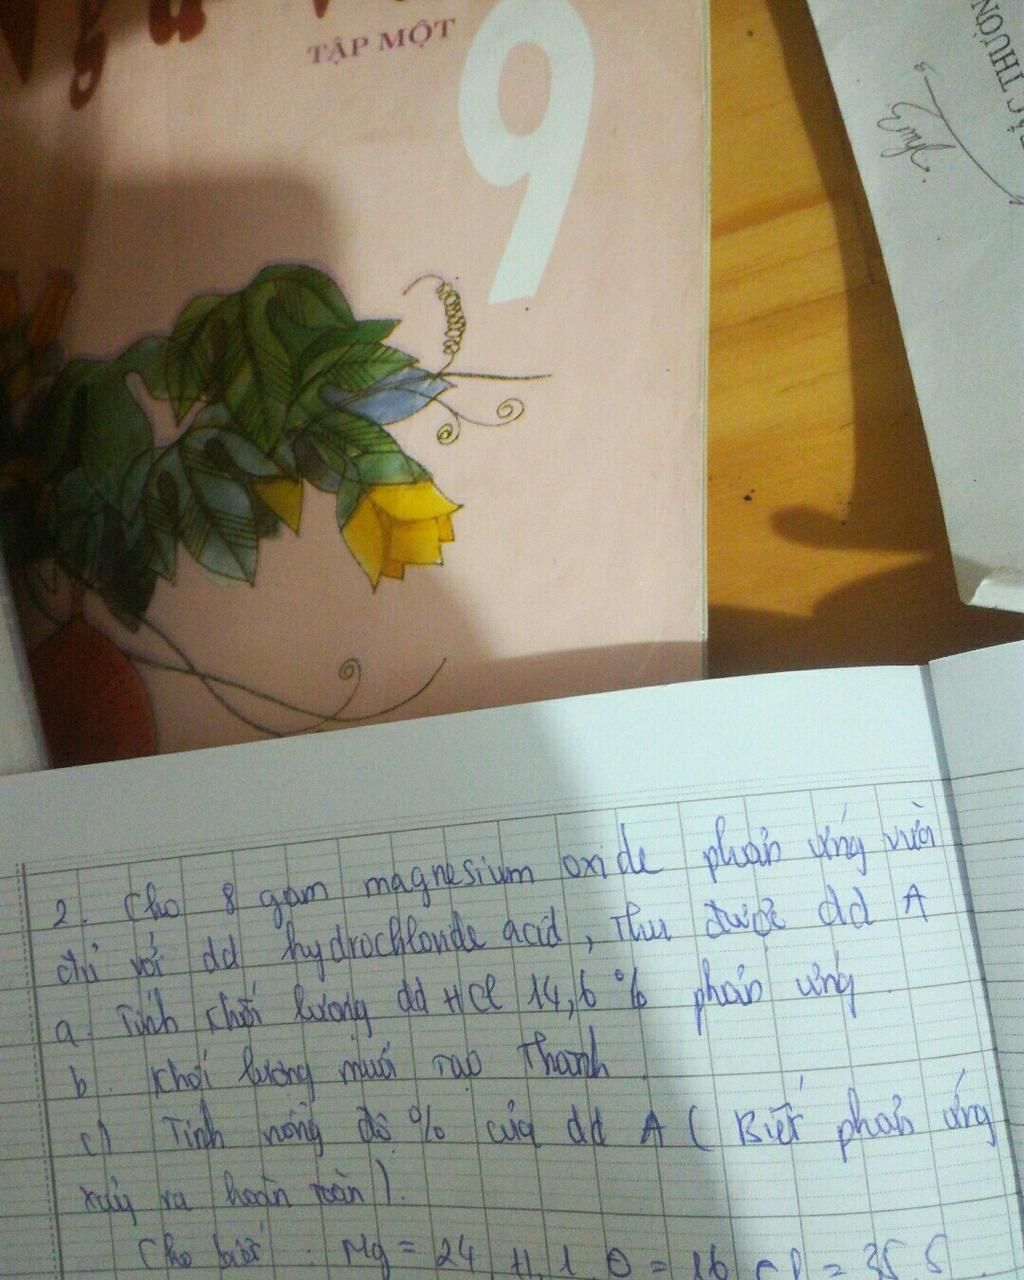 TẬP MỘT
9
2. Cho 8 gam magnesium oxide phản ứng vừa
đủ với dd hydrochloride acid, thu được dd A
a. Tính khối lượng dd HCl 14,6% phản ứng.
b. Khối lượng muối tạo thành.
c) Tính nồng độ % của dd A (Biết phản ứng
xảy ra hoàn toàn).
Cho biết: Mg = 24 H.1 O = 16 Cl = 35,5